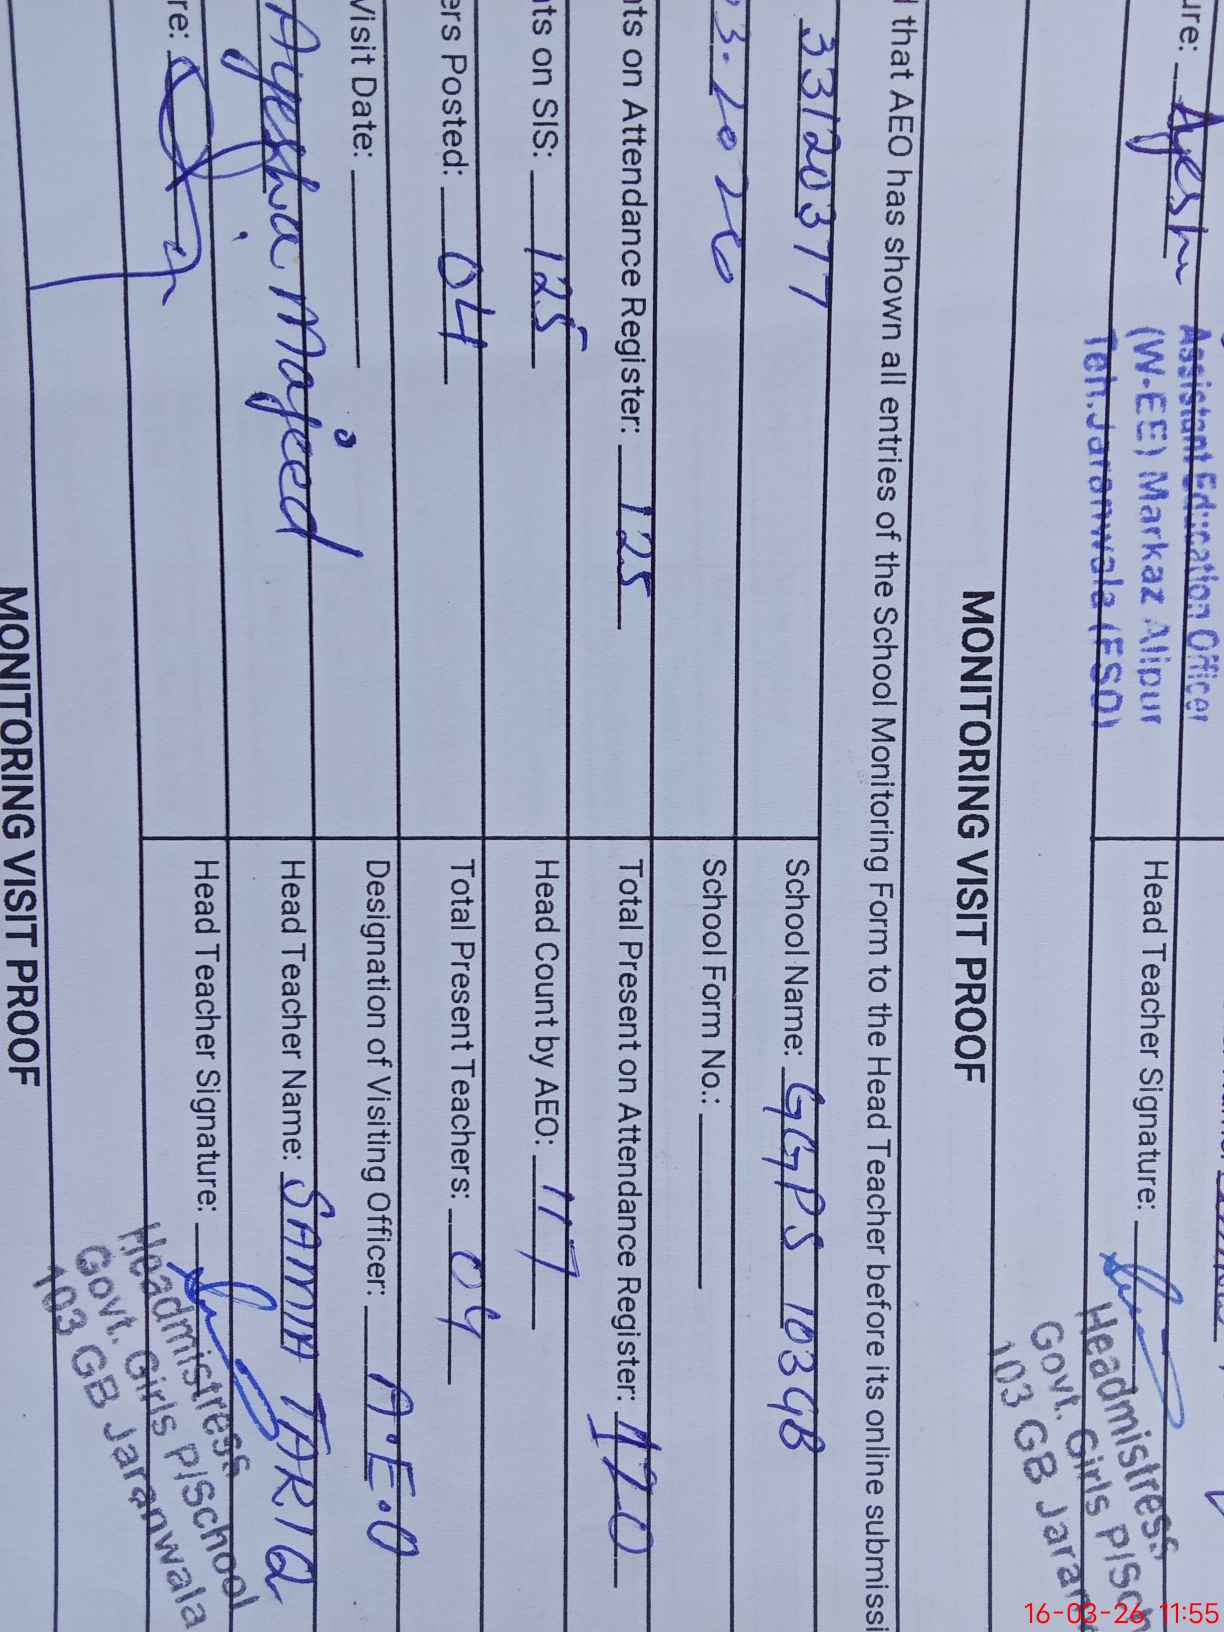 ure: Ayesha
Assistant Education Officer
(W-EE) Markaz Alipur
Teh.Jaranwala (FSD)
Head Teacher Signature:
Headmistress
Govt. Girls P/Sch
103 GB Jaran
MONITORING VISIT PROOF
that AEO has shown all entries of the School Monitoring Form to the Head Teacher before its online submissi
33120377
School Name: GGPS 103GB
School Form No.:
nts on Attendance Register: 125
Total Present on Attendance Register: 120
nts on SIS: 125
Head Count by AEO: 117
ers Posted: 04
Total Present Teachers: 04
Visit Date:
Designation of Visiting Officer: A.E.O
Ayesha Majeed
Head Teacher Name: SAMIA TARIQ
re:
Head Teacher Signature:
Headmistress
Govt. Girls P/School
103 GB Jaranwala
MONITORING VISIT PROOF
16-03-26 11:55